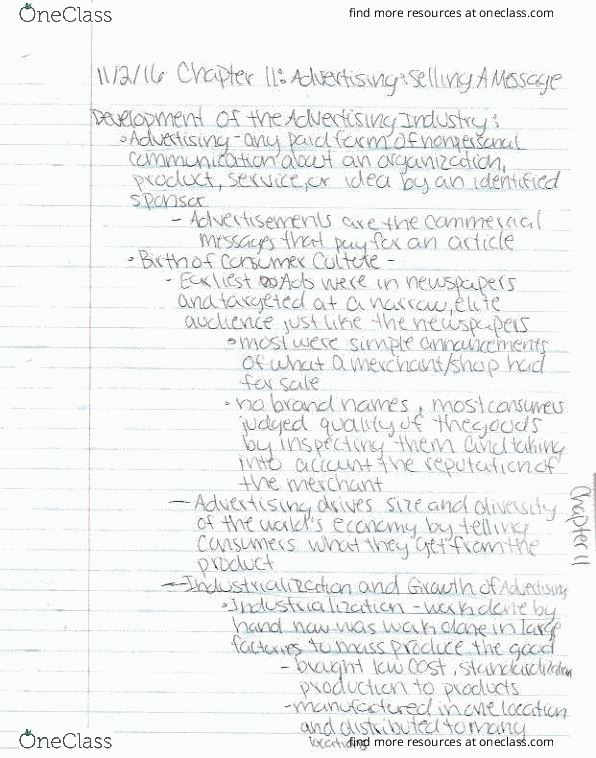 OneClass
find more resources at oneclass.com
11/2/16 Chapter 11: Advertising: Selling A Message
Development of the Advertising Industry:
◦Advertising - any paid form of nonpersonal
communication about an organization,
product, service, or idea by an identified
sponsor
- Advertisements are the commercial
messages that pay for an article
◦Birth of Consumer Culture -
- Earliest Ads were in newspapers
and targeted at a narrow, elite
audience just like the newspapers
◦most were simple announcements
of what a merchant/shop had
for sale
◦no brand names, most consumers
judged quality of the goods
by inspecting them and taking
into account the reputation of
the merchant
- Advertising drives size and diversity
of the world's economy by telling
consumers what they get from the
product
- Industrialization and Growth of Advertising
◦Industrialization - work done by
hand now was work done in large
factories to mass produce the good
- brought low cost, standardization
production to products
- manufactured in one location
and distributed to many
locations
Chapter 11
OneClass
find more resources at oneclass.com